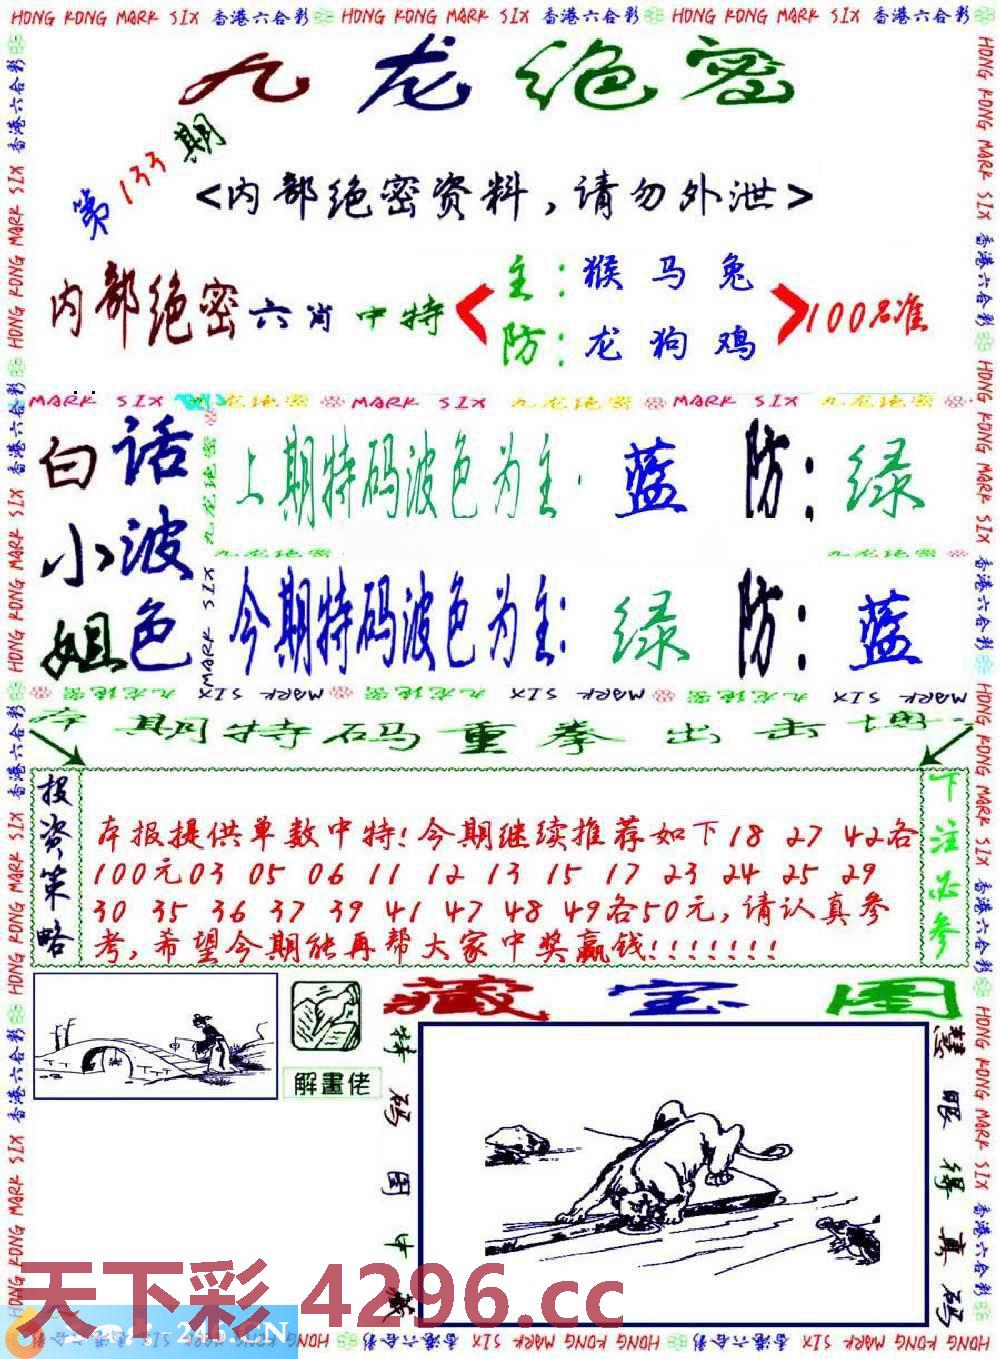 HONG KONG MARK SIX 香港六合彩 HONG KONG MARK SIX 香港六合彩 HONG KONG MARK SIX 香港六合彩
九龙绝密
第133期
<内部绝密资料,请勿外泄>
内部绝密六肖中特
主:猴 马 兔
防:龙 狗 鸡
100%准
MARK SIX 九龙绝密 MARK SIX 九龙绝密 MARK SIX 九龙绝密
白小姐
话波色
上期特码波色为主: 蓝 防: 绿
今期特码波色为主: 绿 防: 蓝
本期特码重拳出击
投资策略
本报提供单数中特!今期继续推荐如下18 27 42各
100元03 05 06 11 12 13 15 17 23 24 25 29
30 35 36 37 39 41 47 48 49各50元,请认真参
考,希望今期能再帮大家中奖赢钱!!!!!!!
下注必参
解畫佬
藏宝图
特码图中藏
慧眼得真码
天下彩 4296.cc
246.CN
HONG KONG MARK SIX 香港六合彩